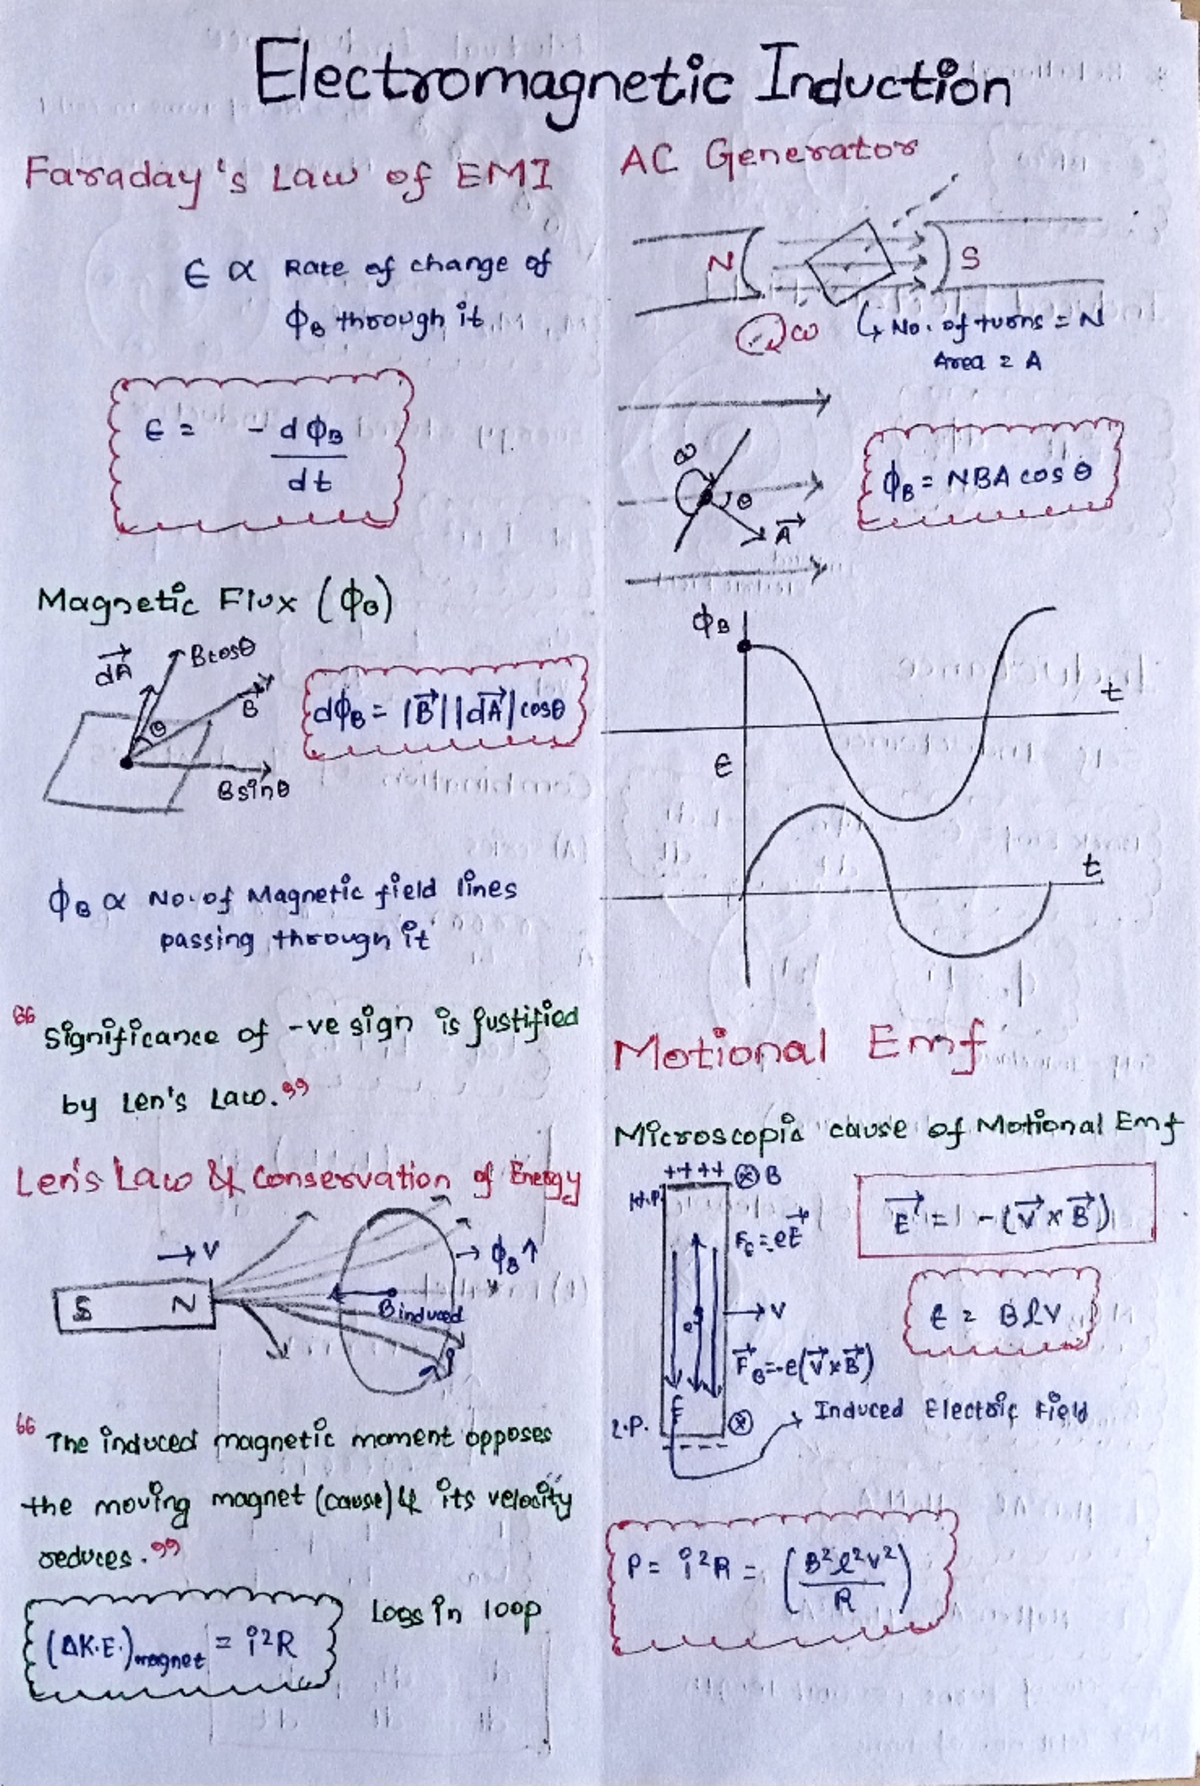 Electromagnetic Induction
Faraday's Law of EMI
ϵ ∝ Rate of change of
ϕB through it
ϵ = - dϕB
dt
Magnetic Flux (ϕB)
dA⃗
Bcosθ
B⃗
θ
Bsinθ
dϕB = |B⃗||dA⃗|cosθ
ϕB ∝ No. of Magnetic field lines
passing through it
“Significance of -ve sign is justified
by Len's Law.”
Len's Law & Conservation of Energy
→ V
S N
→ ϕB↑
Binduced
i
“The induced magnetic moment opposes
the moving magnet (cause) & its velocity
reduces.”
(ΔK.E.)magnet = i²R
Loss in loop
AC Generator
N S
ω
↳ No. of turns = N
Area = A
ω
θ
A⃗
ϕB = NBA cos θ
ϕB
t
ϵ
t
Motional Emf
Microscopic cause of Motional Emf
++++ ⊗ B
H.P.
Fe = eE⃗
e
→ V
F⃗B = -e(V⃗×B⃗)
E
L.P.
⊗
----
Induced Electric Field
E⃗ = -(V⃗×B⃗)
ϵ = BlV
P = i²R = (B²l²v²)
R